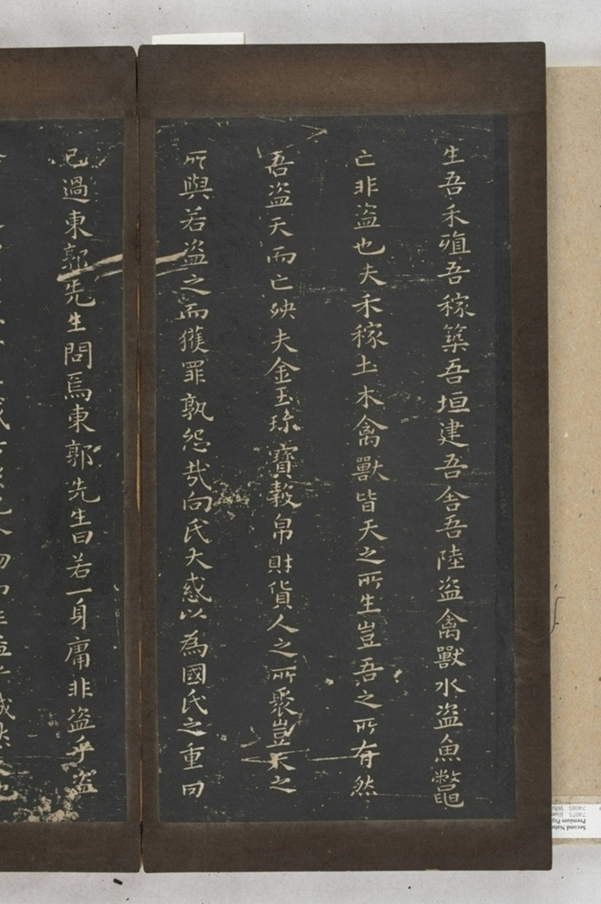 生吾禾殖吾稼築吾垣建吾舍吾陸盗禽獸水盗魚鼈
亡非盗也夫禾稼土木禽獸皆天之所生豈吾之所有然
吾盗天而亡殃夫金玉珎寶穀帛財貨人之所聚豈天之
所與若盗之而獲罪孰怨哉向氏大惑以為國氏之重罔
己過東郭先生問焉東郭先生曰若一身庸非盗乎盗